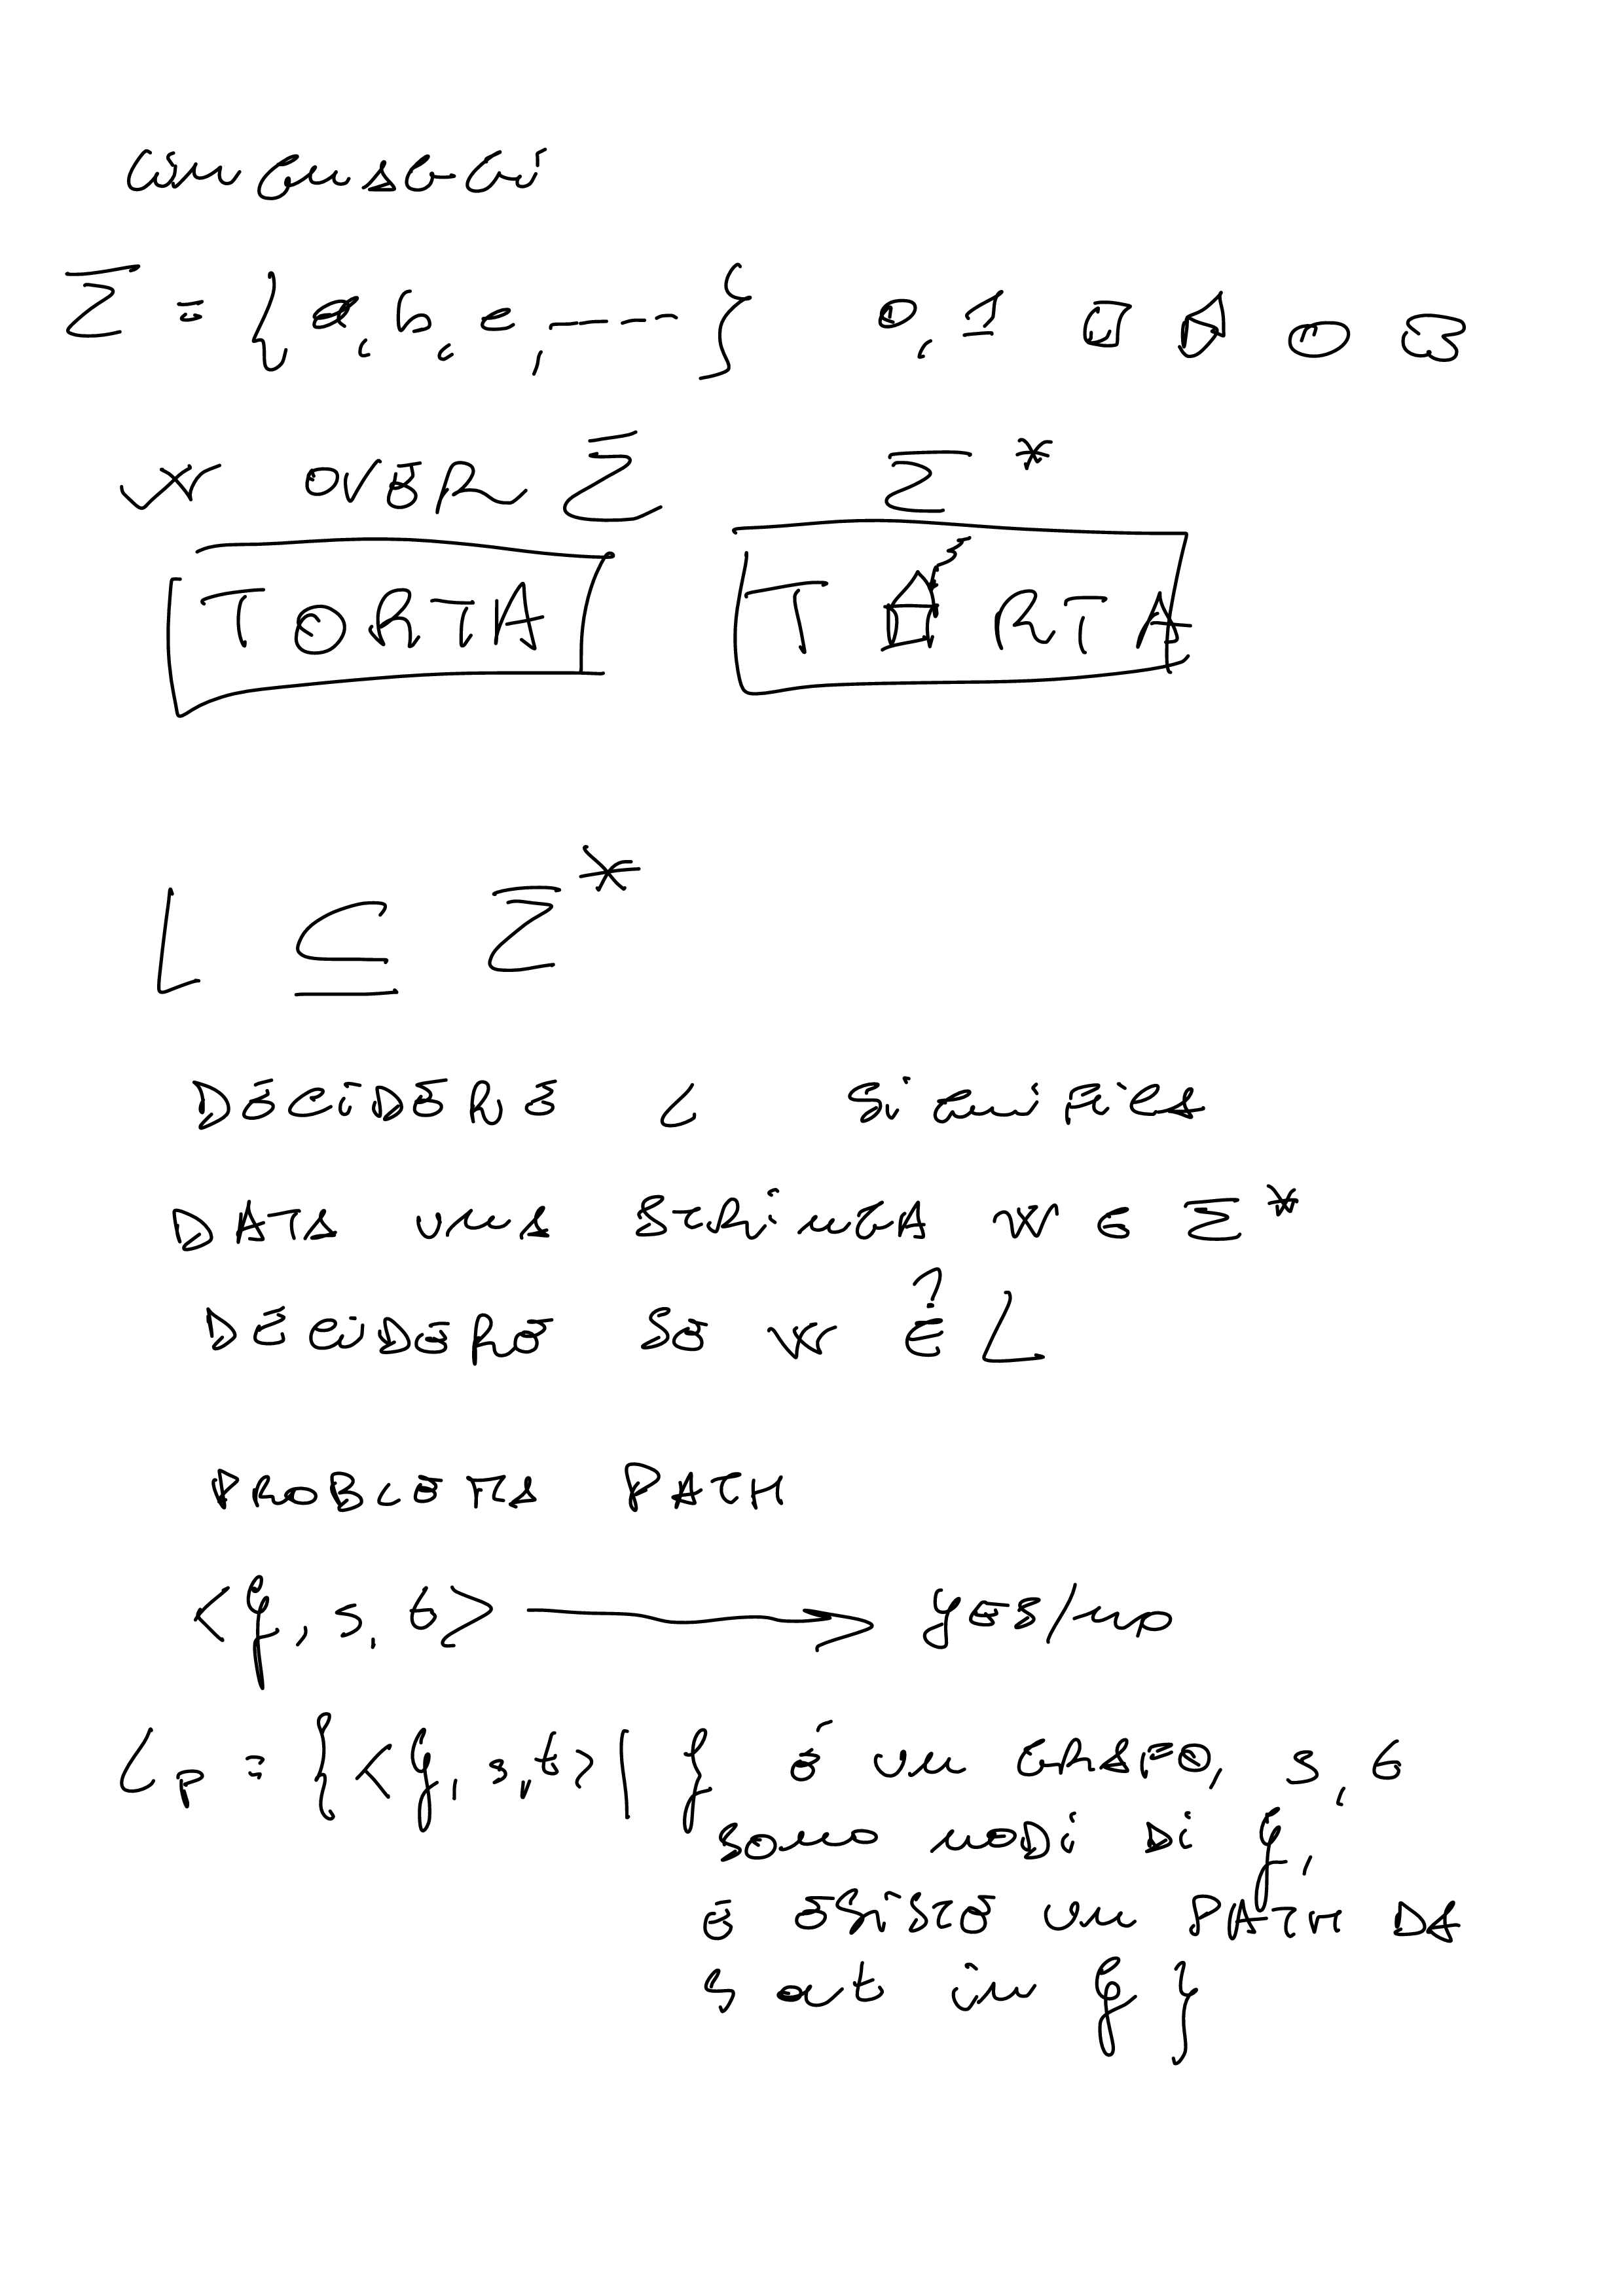 LINGUAGGI
Σ = {a, b, c, ----} 0, 1 □ △ ○
W OVER Σ Σ*
TORTA T RTA
L ⊆ Σ*
DECIDERE L SIGNIFICA
DATA UNA STRINGA W ∈ Σ*
DECIDERE SE W ∈? L
PROBLEMA PATH
<G, s, t> → YES/NO
Lp = {<G, s, t> | G È UN GRAFO, s, t
SONO NODI DI G,
E ESISTE UN PATH DA
s a t in G}